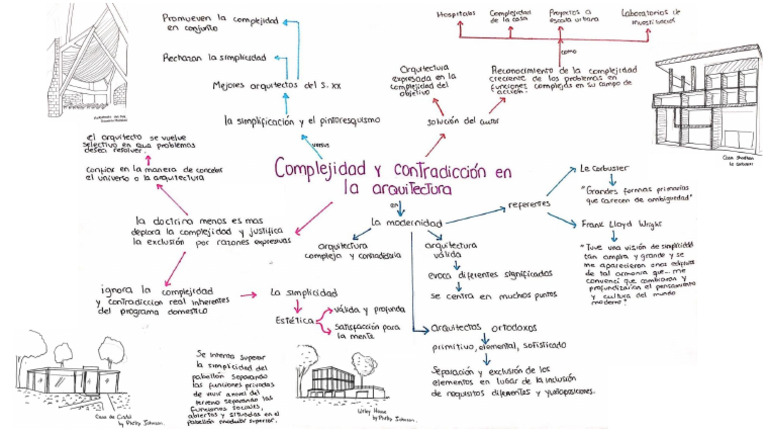 Complejidad y contradicción en
la arquitectura
versus
la simplificación y el pintoresquismo
Mejores arquitectos del S. XX
Rechazan la simplicidad
Promueven la complejidad
en conjunto
solución del autor
Arquitectura
expresada en la
complejidad del
objetivo
Reconocimiento de la complejidad
creciente de los problemas en
funciones complejas en su campo de
acción.
como
Hospitales
Complejidades
de la casa
Proyectos a
escala urbana
Laboratorios de
investigación
en
la modernidad
referentes
Le Corbusier
"Grandes formas primarias
que carecen de ambigüedad"
Frank Lloyd Wright
"Tuve una visión de simplicidad
tan amplia y grande y se
me aparecieron unos edificios
de tal armonia que... me
convencí que cambiaran y
profundizarían el pensamiento
y cultura del mundo
moderno"
arquitectura
compleja y contradictoria
arquitectura
válida
evoca diferentes significados
se centra en muchos puntos
arquitectos ortodoxos
primitivo, elemental, sofisticado
Separación y exclusión de los
elementos en lugar de la inclusión
de requisitos diferentes y yuxtaposiciones.
la doctrina menos es mas
deplora la complejidad y justifica
la exclusión por razones expresivas
confiar en la manera de concebir
el universo o la arquitectura
el arquitecto se vuelve
selectivo en que problemas
desea resolver.
ignora la complejidad
y contradiccion real inherentes
del programa domestico
La simplicidad
Estética
válida y profunda
satisfacción para
la mente
Se intenta superar
la simplicidad del
pabellón separando
las funciones privadas
de vivir a nivel del
terreno separando las
funciones sociales,
abiertas y situadas en el
pabellón modular superior.
Casa de Cristal
by Philip Johnson.
Wiley House
by Philip Johnson.
Casa Shodhan
Le Corbusier